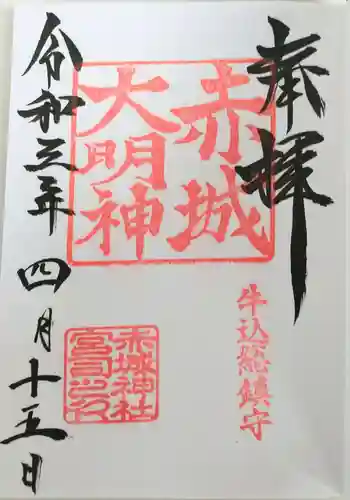 奉拝
赤城
大明神
牛込総鎮守
赤城神社
宮司之印
令和三年四月十五日